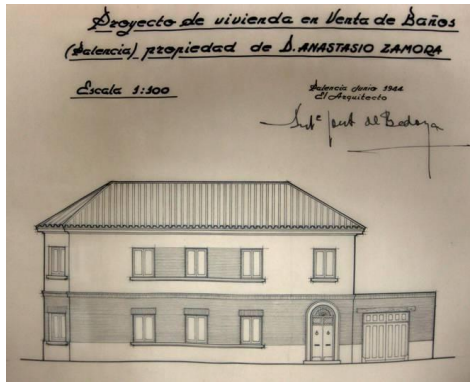 Proyecto de vivienda en Venta de Baños
(Palencia) propiedad de D. ANASTASIO ZAMORA
Escala 1:100
Palencia Junio 1944
El Arquitecto